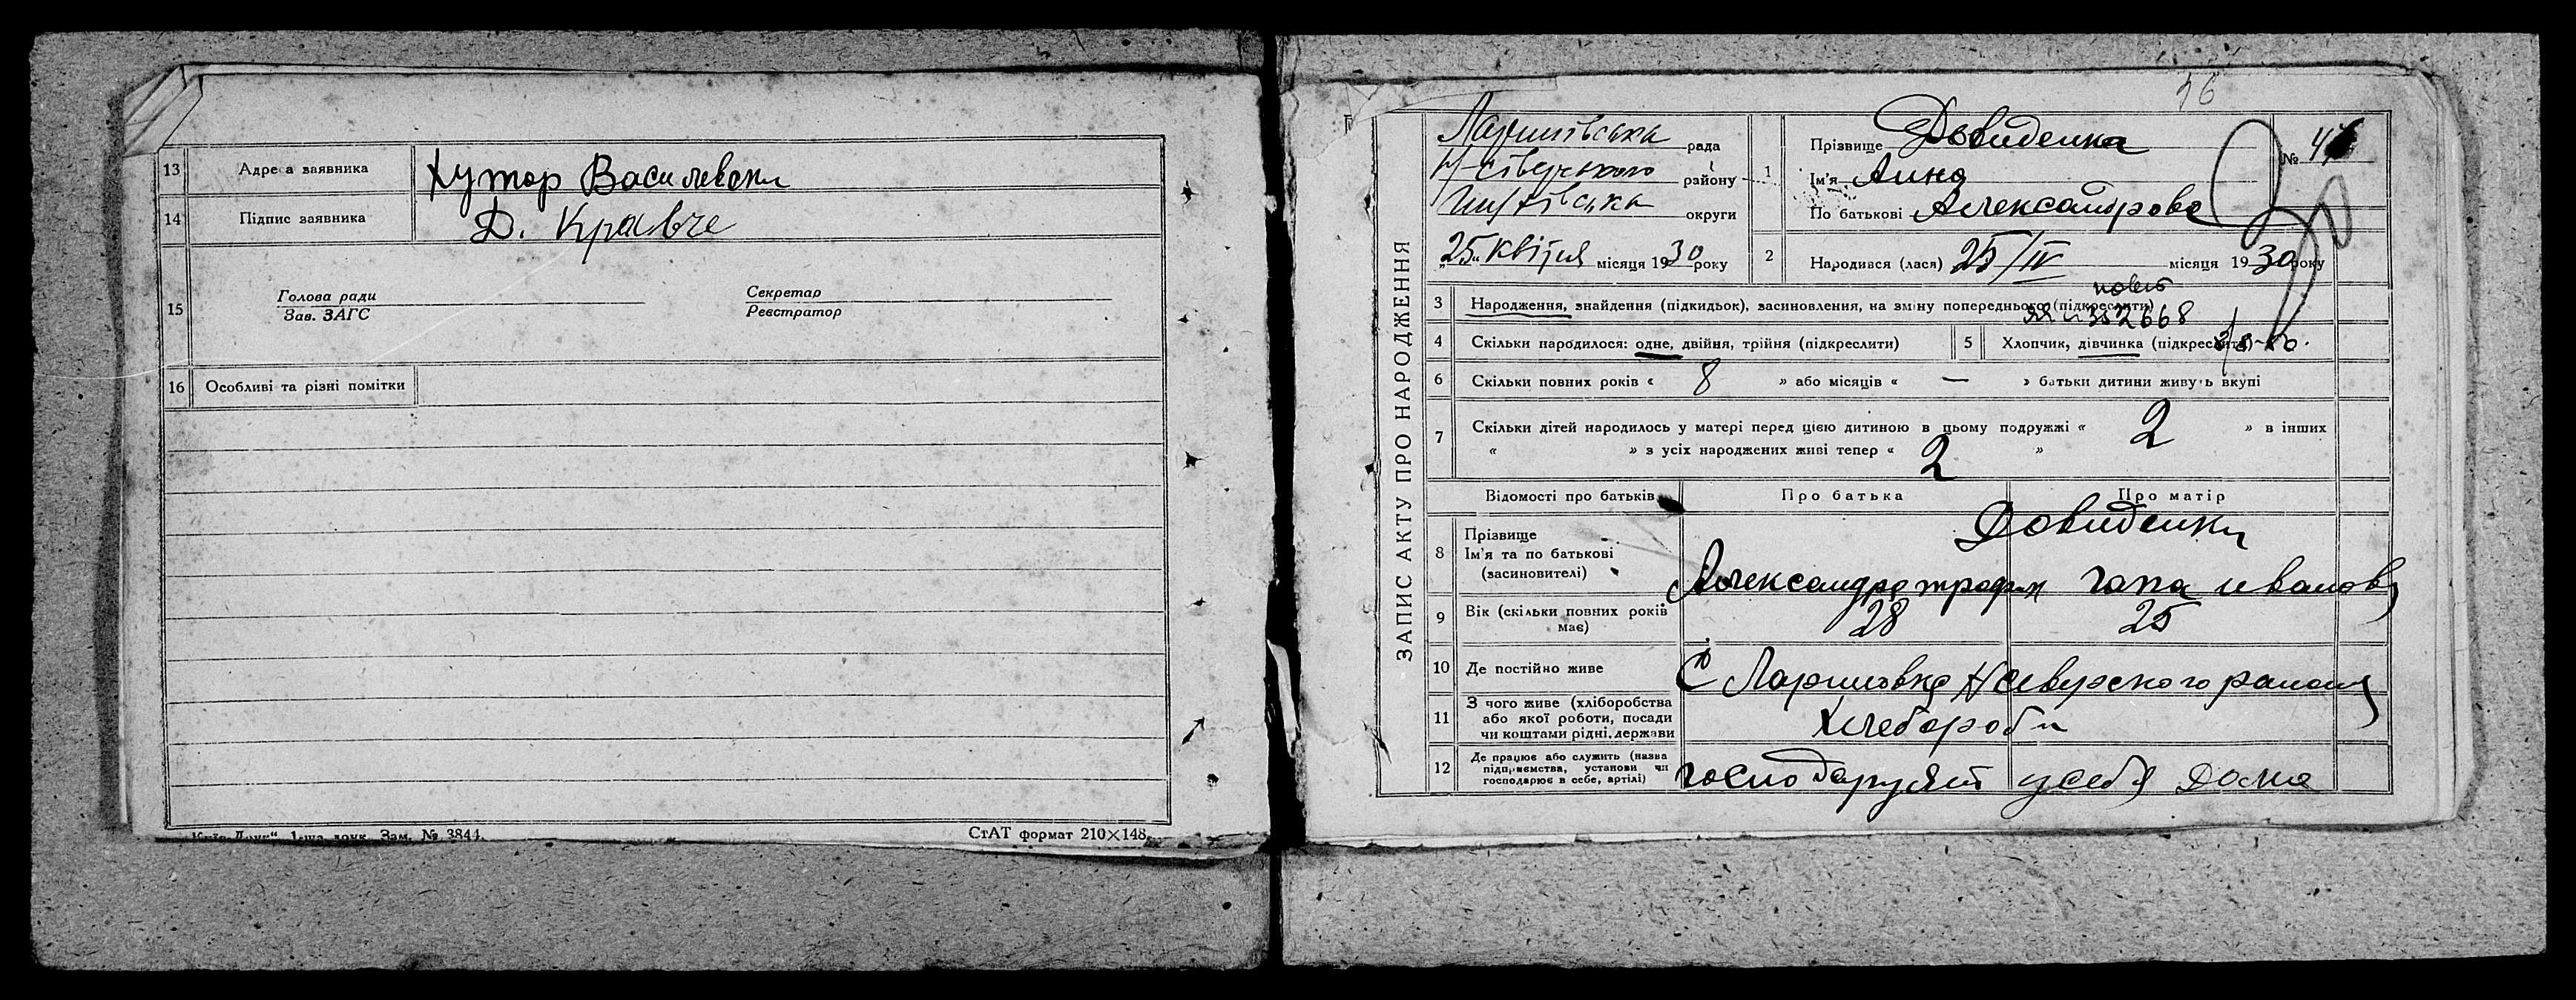 13 Адреса заявника Хутор Василевски
14 Підпис заявника Д. Кравче
15 Голова ради Секретар
Зав. ЗАГС Реєстратор
16 Особливі та різні помітки
1-ша друк. Зам. № 3844.
СтАТ формат 210×148.
ЗАПИС АКТУ ПРО НАРОДЖЕННЯ
рада
Н-сіверського району
округи
„25“ квітня місяця 1930 року
1 Прізвище Довиденка
Ім'я Анна
По батькові Александрова
№ 4
2 Народився (лася) 25/IV місяця 1930 року
3 Народження, знайдення (підкидьок), засиновлення, на зміну попереднього (підкреслити)
352668
4 Скільки народилося: одне, двійня, трійня (підкреслити)
5 Хлопчик, дівчинка (підкреслити)
6 Скільки повних років « 8 » або місяців « — » батьки дитини живуть вкупі
7 Скільки дітей народилось у матері перед цією дитиною в цьому подружжі « 2 » в інших
« » з усіх народжених живі тепер « 2 »
Відомості про батьків Про батька Про матір
8 Прізвище Довиденки
Ім'я та по батькові
(засиновителі) Александра трофим гапа иванов
9 Вік (скільки повних років має) 28 25
10 Де постійно живе С Лариновка Нсеверского района
11 З чого живе (хліборобства
або якої роботи, посади
чи коштами рідні, держави Хлебороби
12 Де працює або служить (назва
підприємства, установи чи
господарює в себе, артілі) господаруят усебя дома